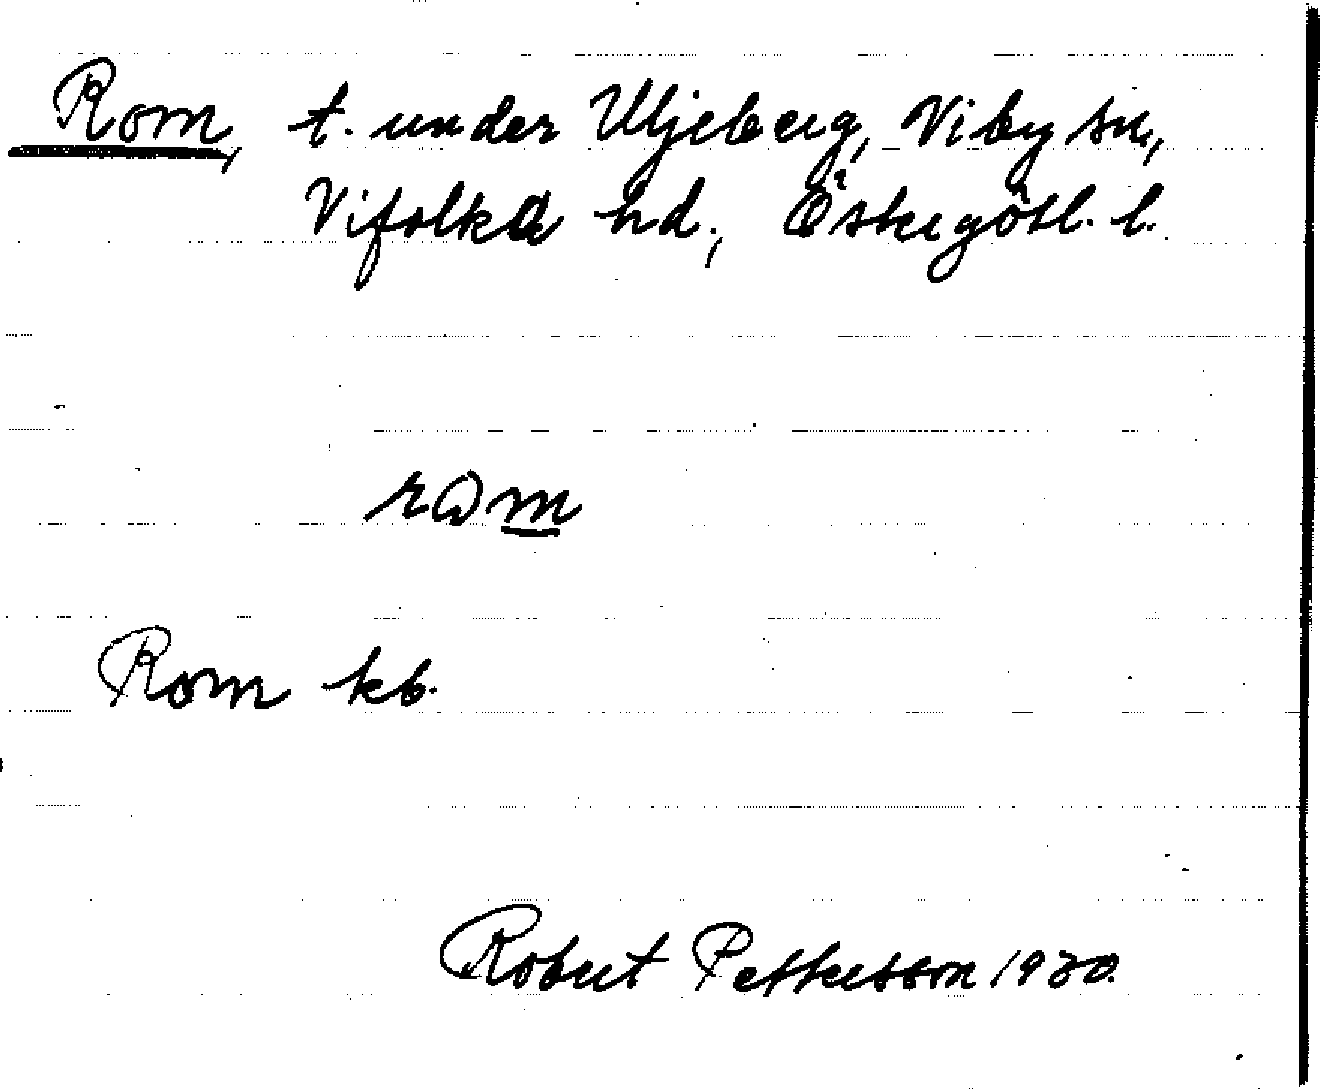 Rom, t. under Uljeberg, Viby sn,
Vifolka hd., Östergötl. l.
rωm
Rom kb.
Robert Pettersson 1930.